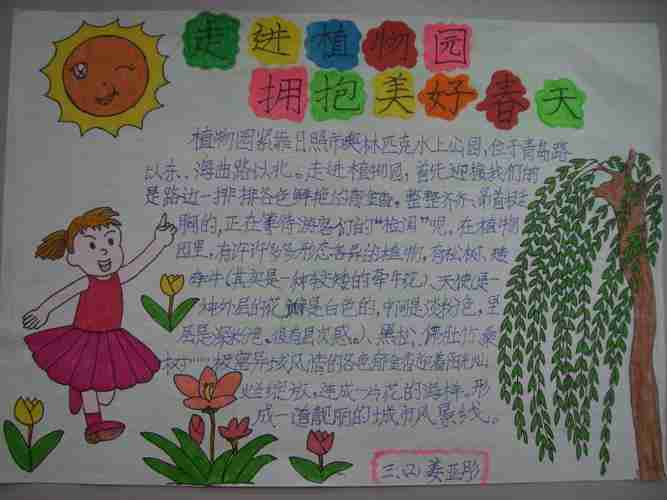 走进植物园
拥抱美好春天
植物园紧靠日照市奥林匹克水上公园,位于青岛路
以东、海曲路以北。走进植物园,首先迎接我们的
是路边一排排各色鲜艳的郁金香。整整齐齐、昂首挺
胸的,正在等待游客们的“检阅”呢。在植物
园里,有许许多多形态各异的植物,有松树、矮
牵牛(其实是一种较矮的牵牛花)、天使(是一
种外层的花瓣是白色的,中间是淡粉色,里
层是深粉色,很有层次感。)、黑松、佛肚竹、桑
树……极富异域风情的各色郁金香迎着阳光灿
烂绽放,连成一片花的海洋。形
成一道靓丽的城市风景线。
三.(2) 姜亚彤